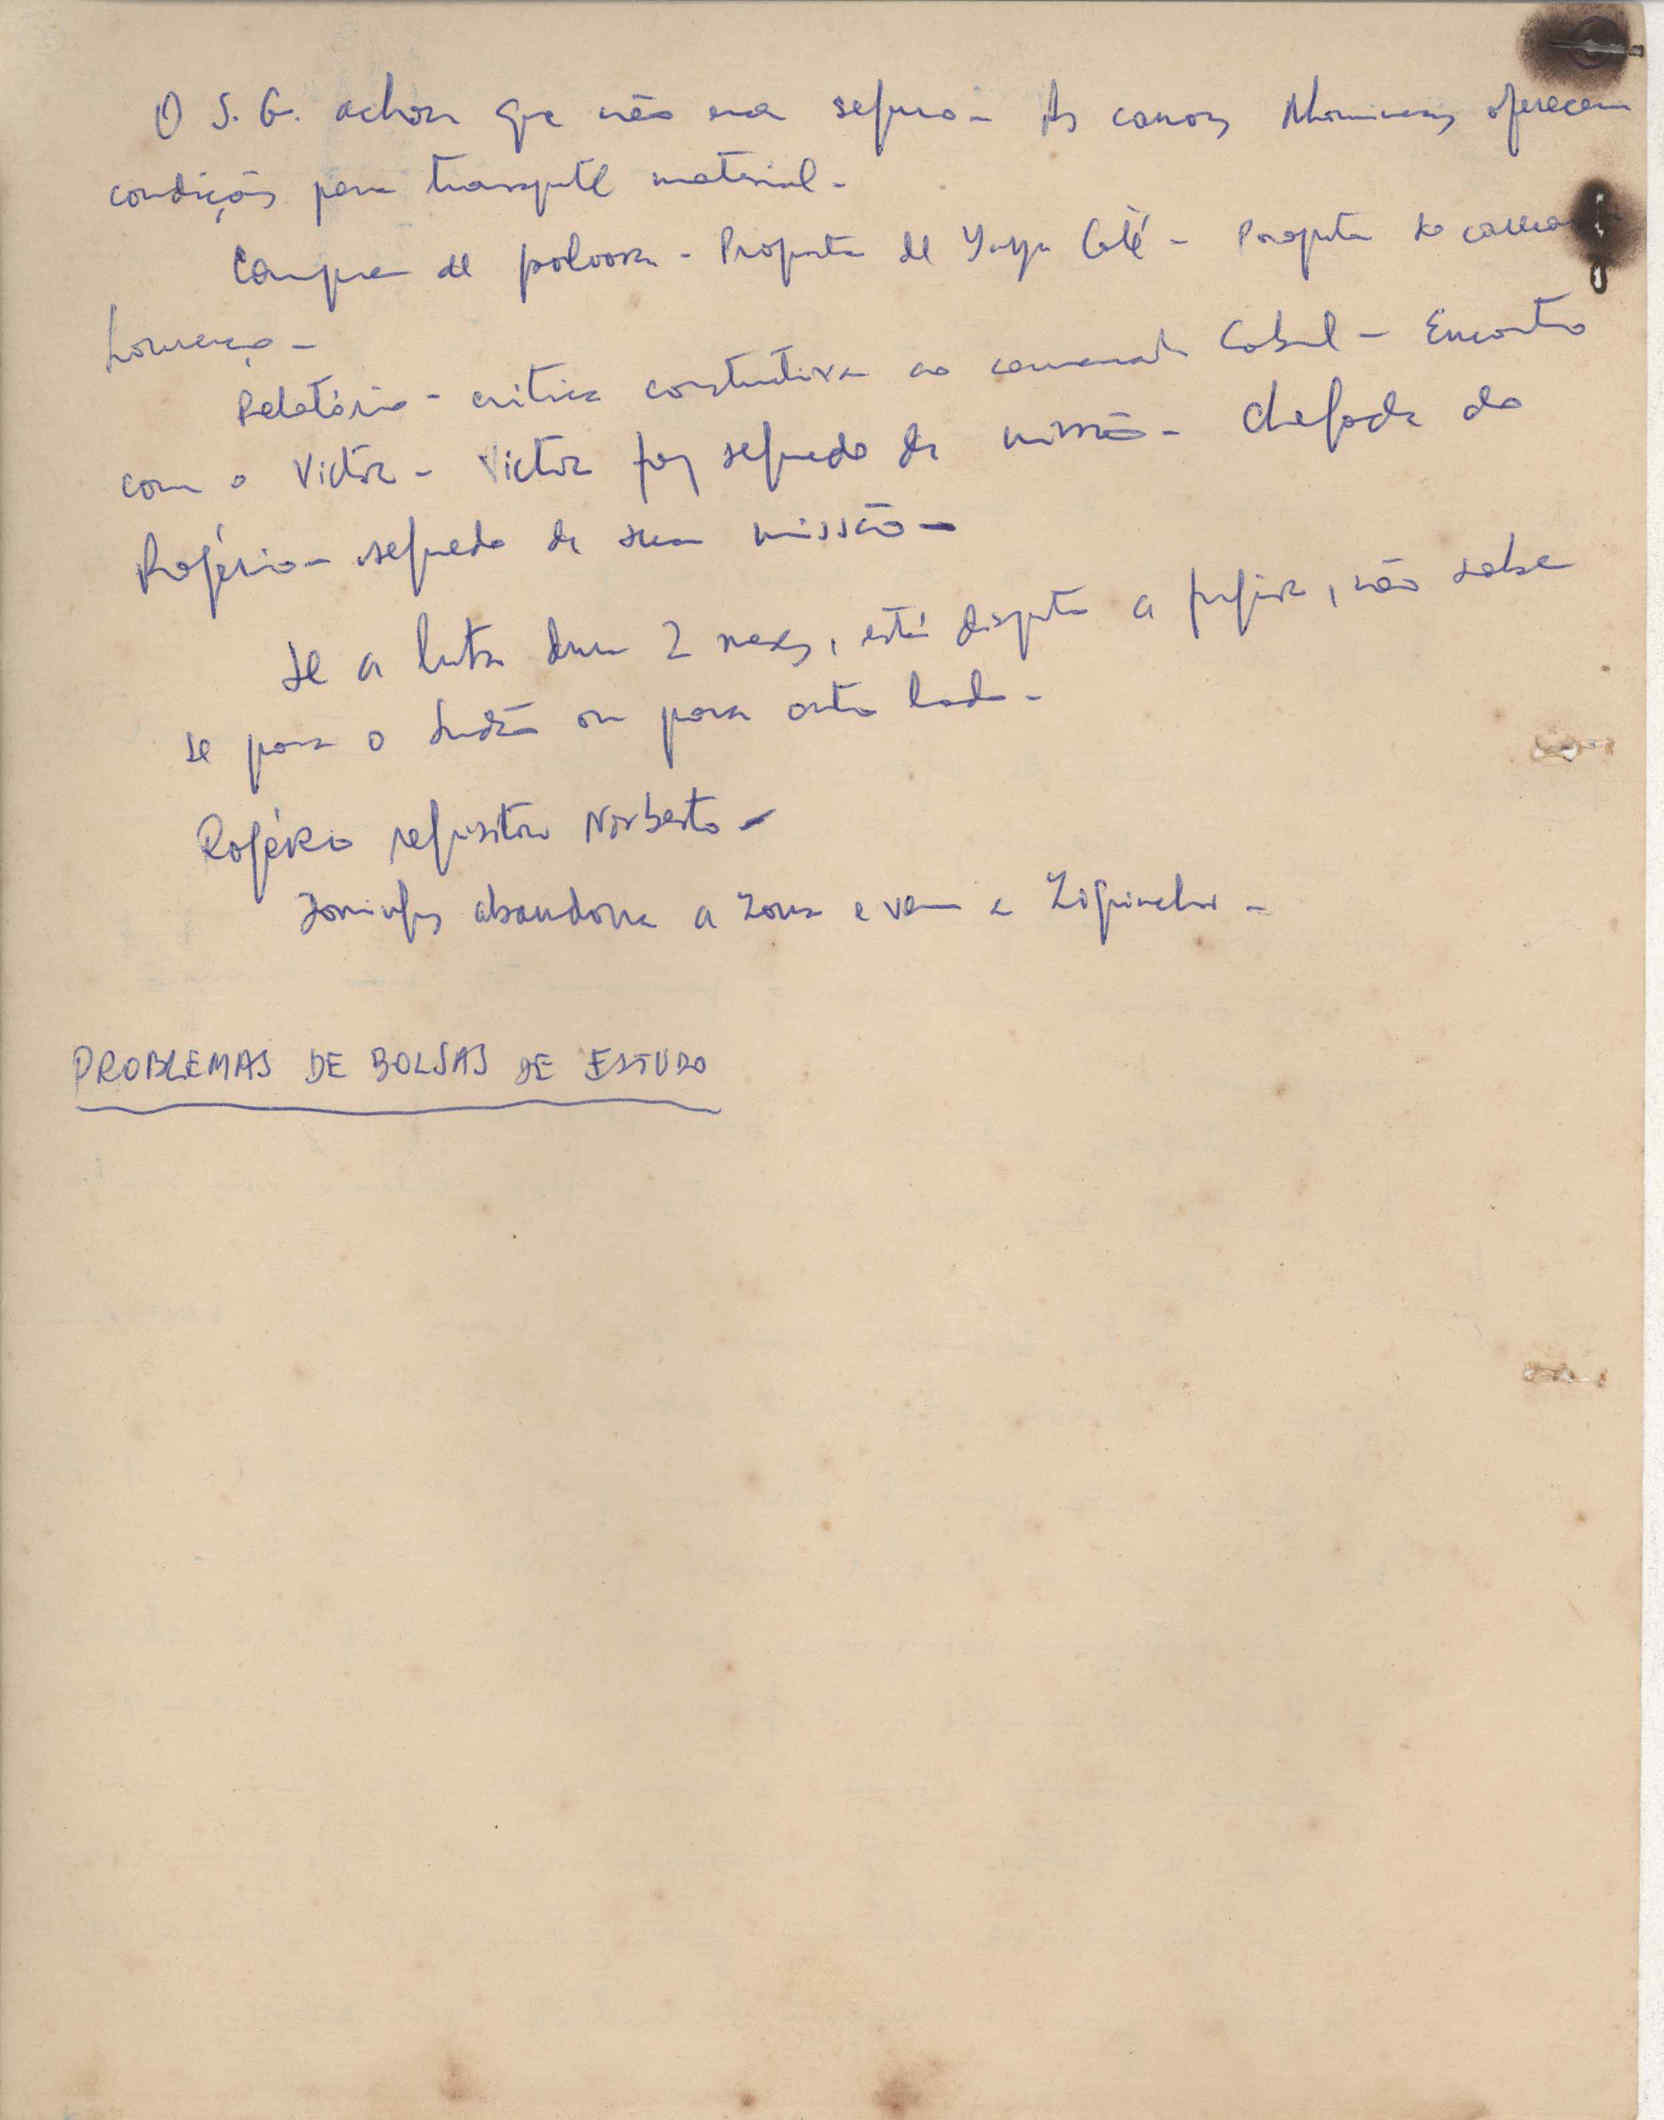 O S. G. achou que não era seguro - As canoas Nhomincas oferecem
condições para transporte material -
Compra de polvora - Proposta de Yaya Coté - Proposta do camara
Lourenço -
Relatório - critica construtiva ao camarada Cabral - Encontro
com o Victor - Victor faz segredo da missão - Chegada do
Rogério - segredo da sua missão -
Se a luta dura 2 meses, está disposto a fugir, não sabe
se para o Sudão ou para outro lado -
Rogério requisitou Norberto -
Domingos abandona a zona e vem a Ziguinchor -
PROBLEMAS DE BOLSAS DE ESTUDO